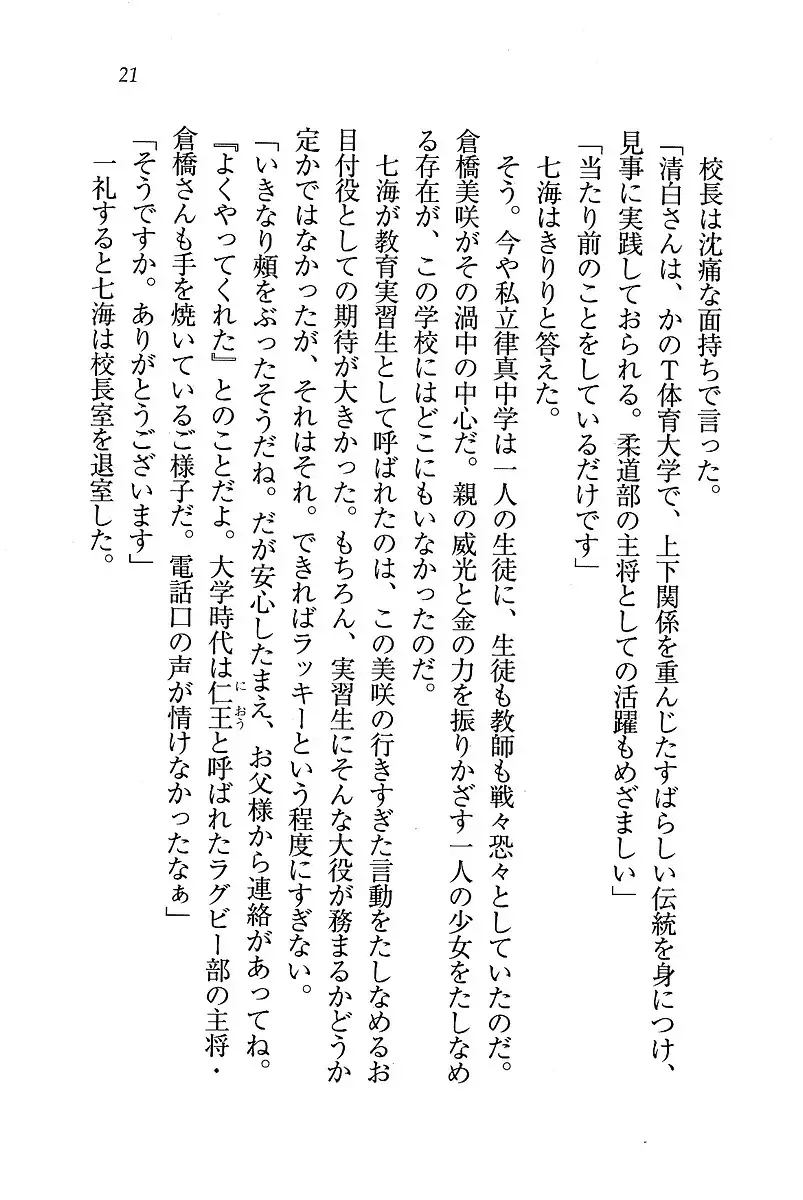 21
校長は沈痛な面持ちで言った。
「清白さんは、かのT体育大学で、上下関係を重んじたすばらしい伝統を身につけ、
見事に実践しておられる。柔道部の主将としての活躍もめざましい」
「当たり前のことをしているだけです」
七海はきりりと答えた。
そう。今や私立律真中学は一人の生徒に、生徒も教師も戦々恐々としていたのだ。
倉橋美咲がその渦中の中心だ。親の威光と金の力を振りかざす一人の少女をたしなめ
る存在が、この学校にはどこにもいなかったのだ。
七海が教育実習生として呼ばれたのは、この美咲の行きすぎた言動をたしなめるお
目付役としての期待が大きかった。もちろん、実習生にそんな大役が務まるかどうか
定かではなかったが、それはそれ。できればラッキーという程度にすぎない。
「いきなり頬をぶったそうだね。だが安心したまえ、お父様から連絡があってね。
『よくやってくれた』とのことだよ。大学時代は仁王と呼ばれたラグビー部の主将・
におう
倉橋さんも手を焼いているご様子だ。電話口の声が情けなかったなぁ」
「そうですか。ありがとうございます」
一礼すると七海は校長室を退室した。